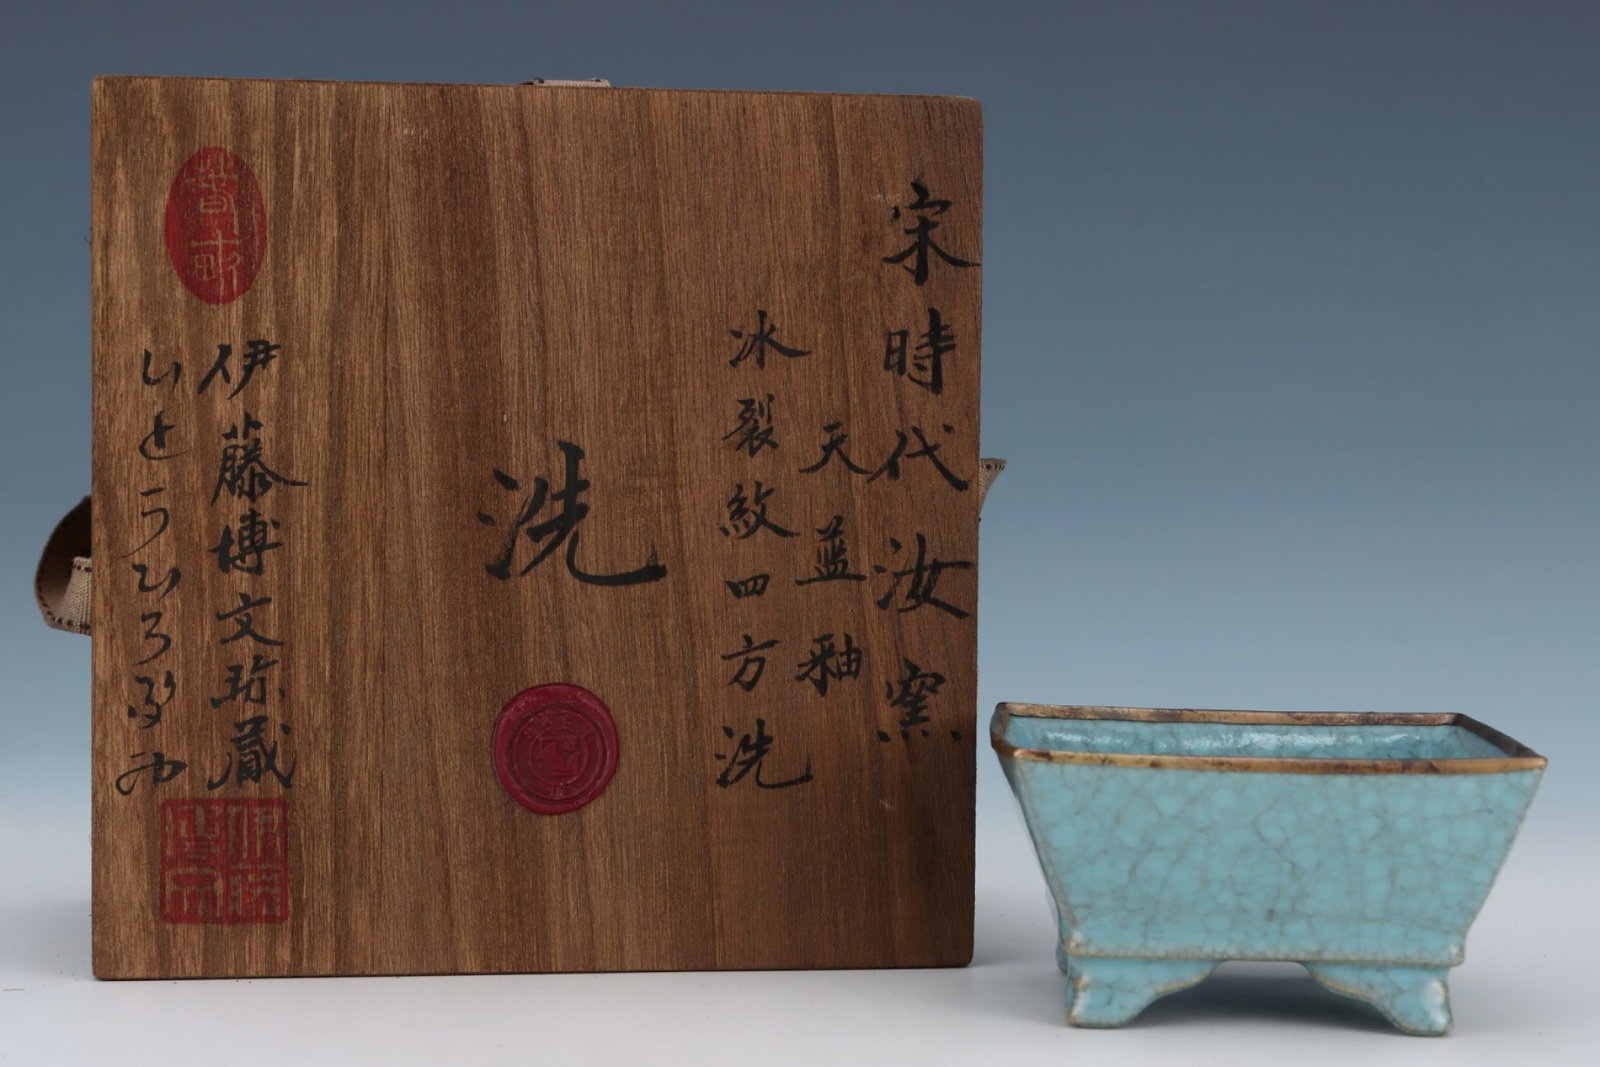 宋時代汝窯
天蓝釉
冰裂紋四方洗
洗
伊藤博文珎藏
いとうひろぶみ